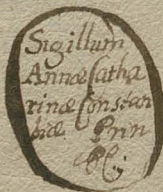 Sigillum
Annæ Catha
rinæ Constan
tiæ Prin